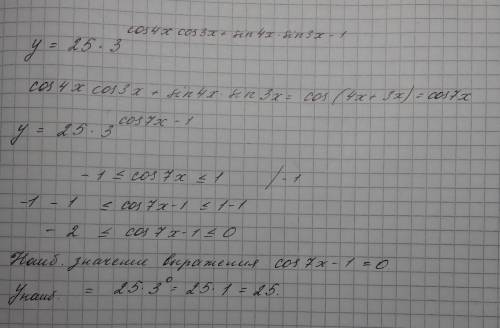 y = 25 · 3^{cos4x cos3x + sin4x · sin3x - 1}
cos4x cos3x + sin4x · sin3x = cos(4x+3x) = cos7x
y = 25 · 3^{cos7x - 1}
-1 ≤ cos7x ≤ 1 /-1
-1 -1 ≤ cos7x-1 ≤ 1-1
-2 ≤ cos7x-1 ≤ 0
Наиб. значение выражения cos7x-1 = 0
Yнаиб. = 25·3^0 = 25·1 = 25.